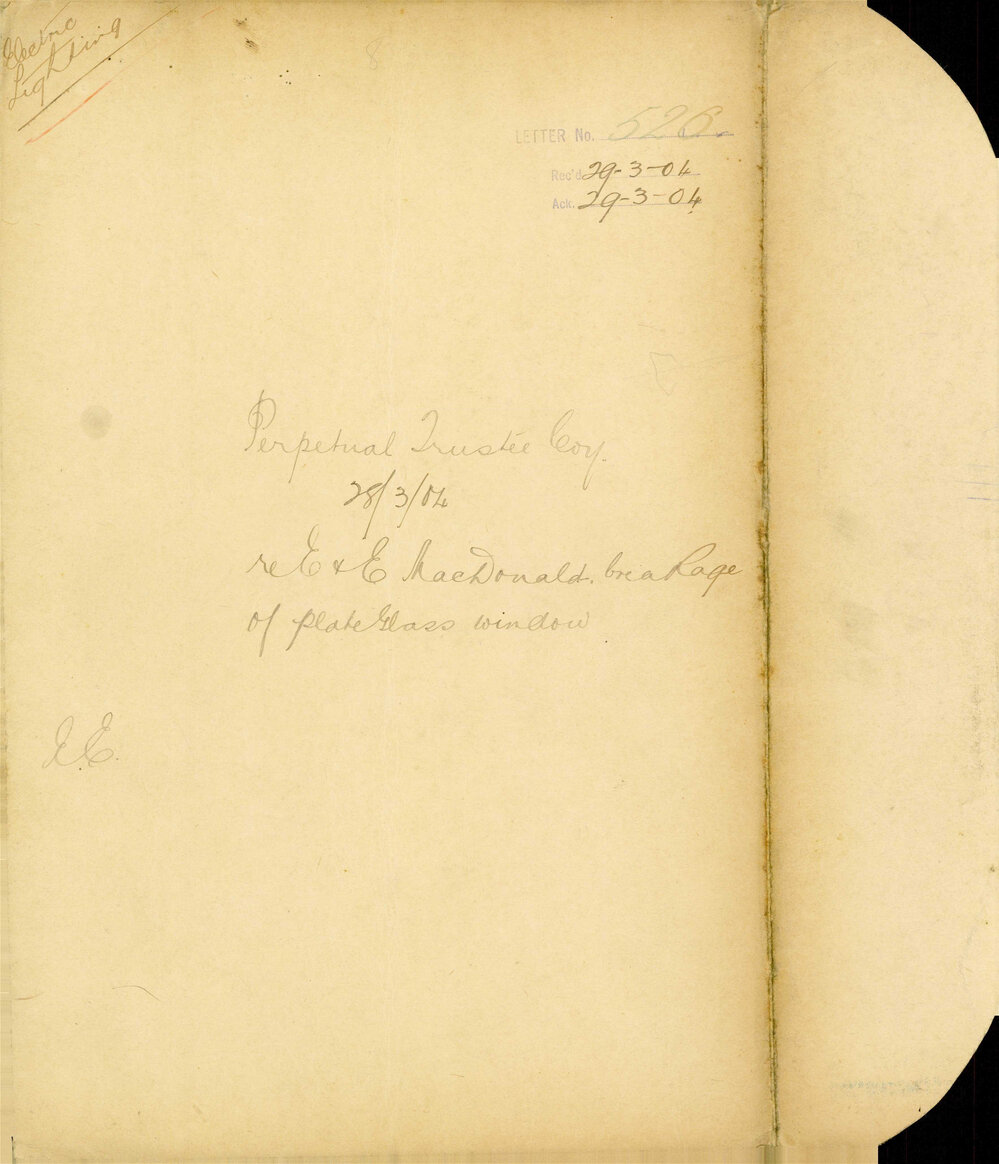 Electric
Lighting
LETTER No. 526
Rec'd 29-3-04
Ack. 29-3-04
Perpetual Trustee Coy.
28/3/04
re E & E MacDonald. breakage
of plate Glass window